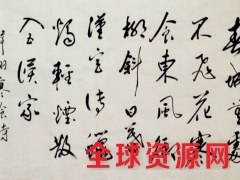 春城無處
不飛花寒
食東風御
柳斜日暮
漢宮傳蠟
燭輕煙散
入五侯家
全球资源网